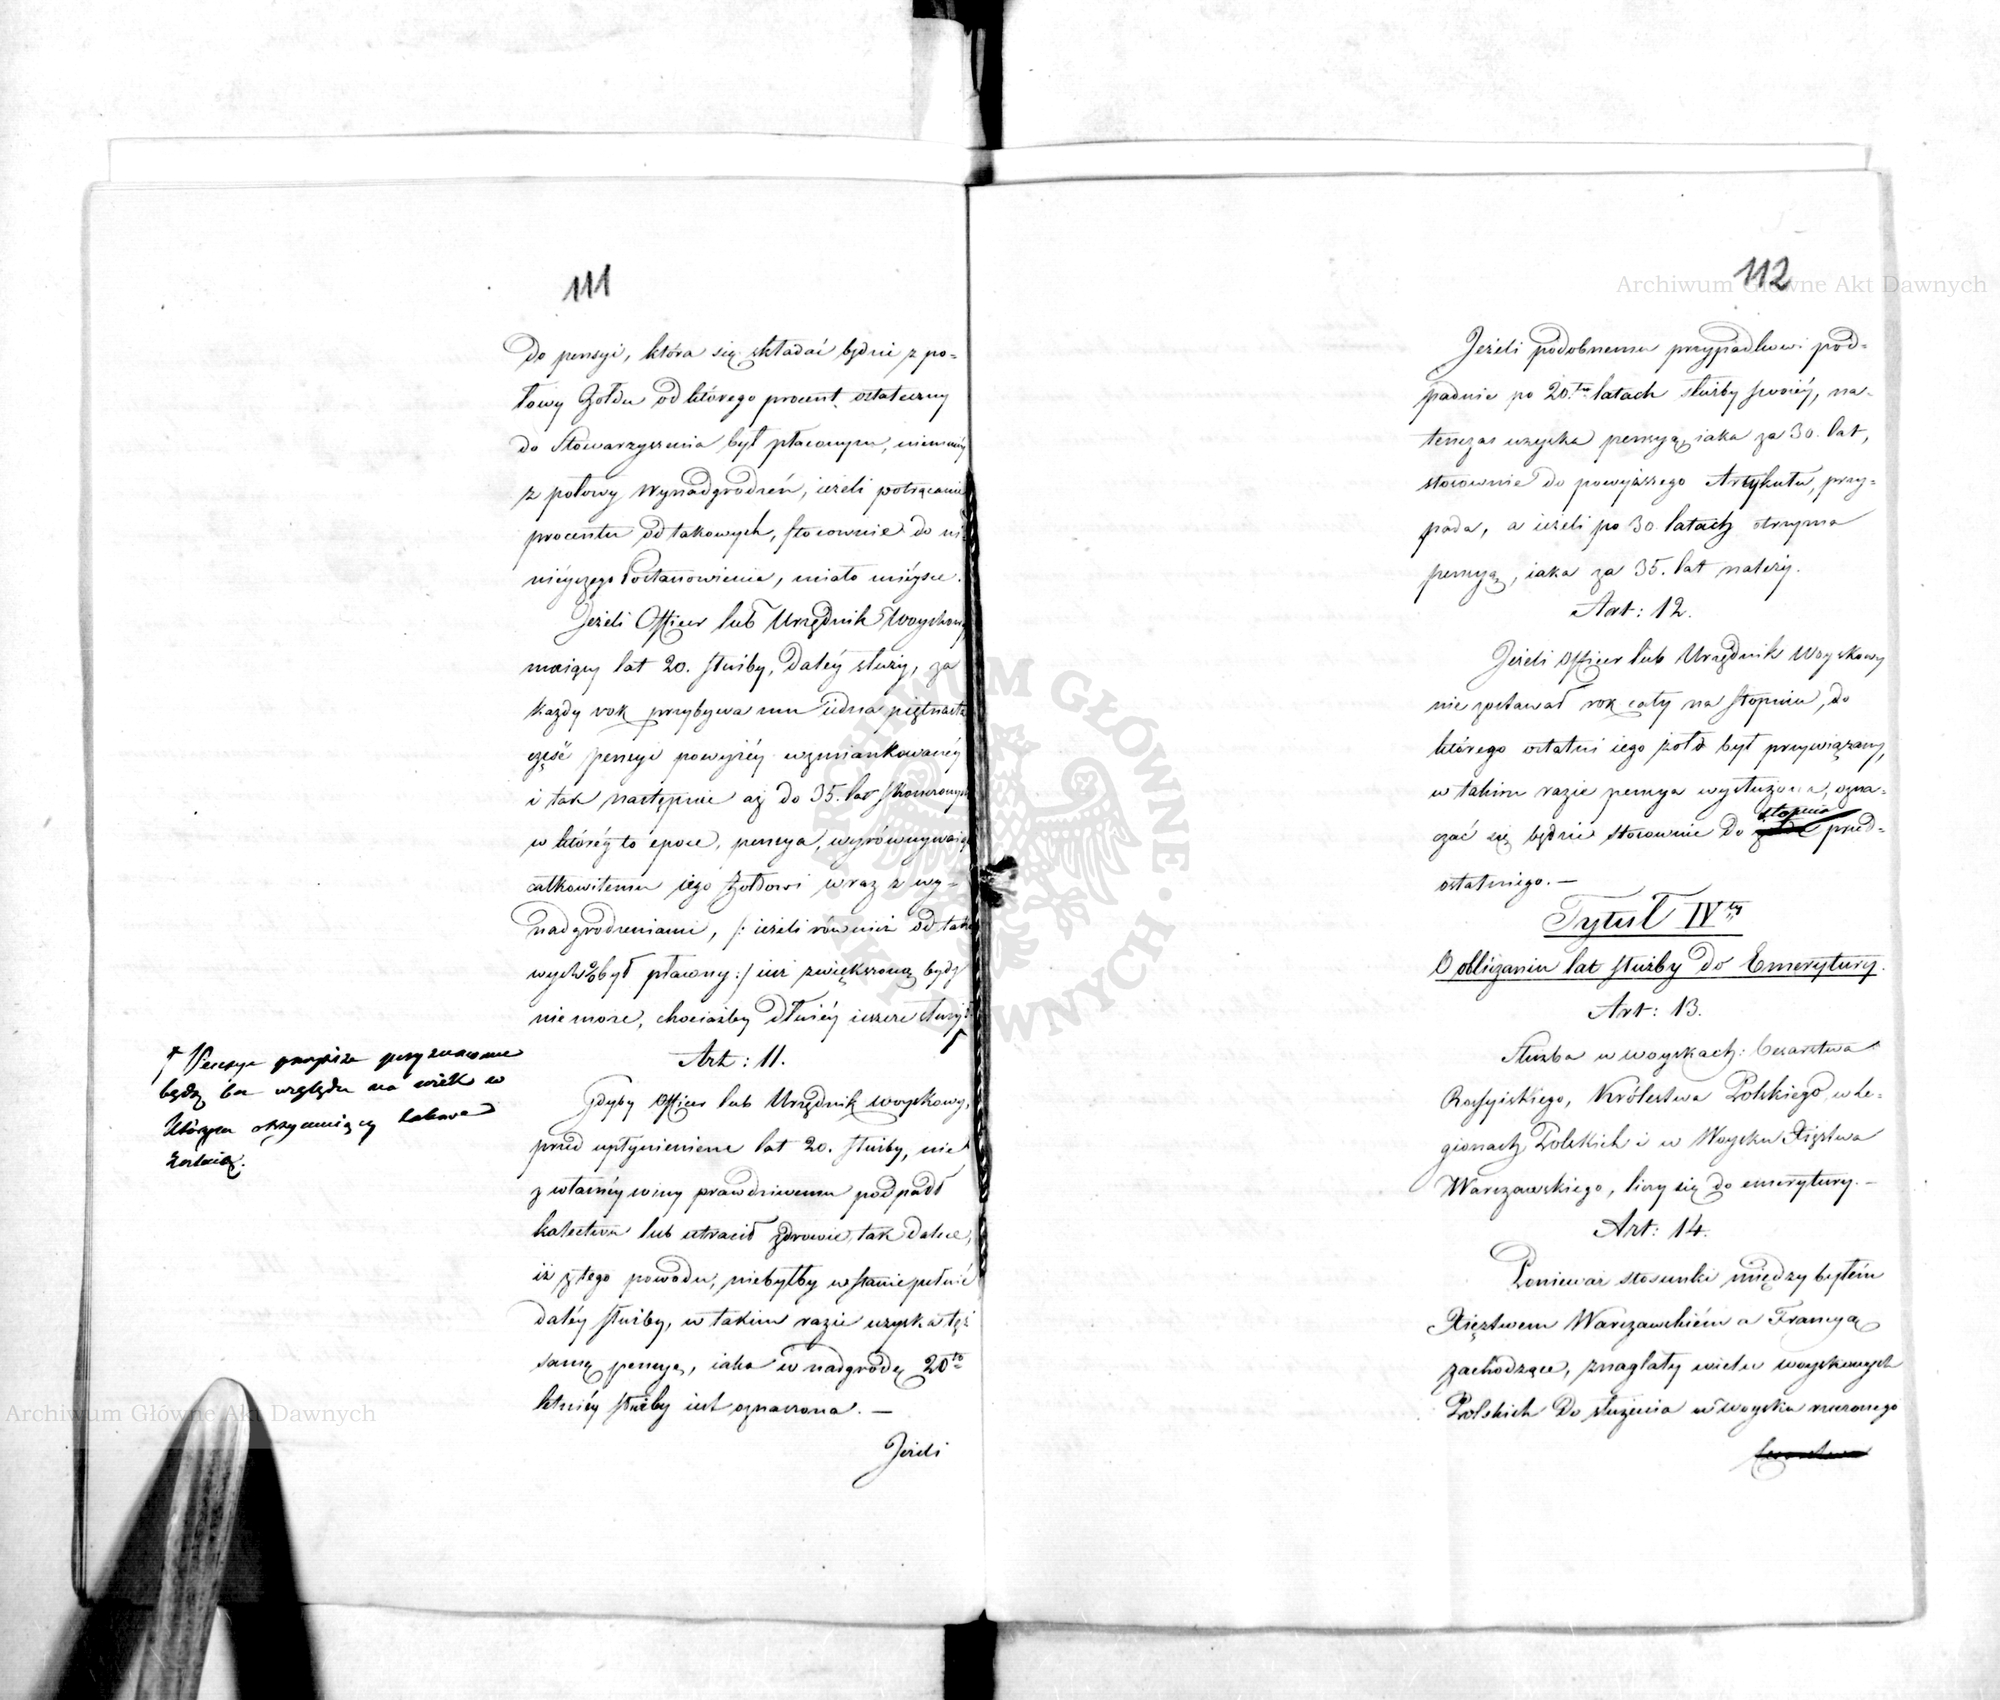 111
do pensyi, która się składać będzie z po-
łowy Żołdu od którego procent ostateczny
do Stowarzyszenia był płaconym, niemniéy
z połowy Wynadgrodzeń, ieżeli potrącanie
procentu od takowych, stosownie do ni-
nieyszego Postanowienia, miało mieysce.
Jeżeli Officer lub Urzędnik Woyskowy
maiący lat 20. służby, daléy służy, za
każdy rok przybywa mu iedna piętnasta
część pensyi powyżéy wzmiankowanéy
i tak następnie aż do 35. lat skończonych
w któréy to epoce, pensya, wyrównywaiąca
całkowitemu iego Żołdowi wraz z wy-
nadgrodzeniami, /: ieżeli również od tako
wych % był płacony :/ iuż zwiększoną bydź
nie może, chociażby dłużéy ieszcze służył.
† Pensye powyższe przyznawane
będą bez względu na wiek w
którym otrzymuiący takowe
zostaią.
Art: 11.
Gdyby Officer lub Urzędnik woyskowy,
przed upłynieniem lat 20. służby, nie
z własnéy winy prawdziwemu podpadł
kalectwu lub utracił zdrowie, tak dalece,
iż z tego powodu, niebyłby w stanie pełnić
daléy służby, w takim razie uzyska tęż
samą pensyę, iaka w nadgrodę 20to
letniéy służby iest oznaczona. —
Jeżeli
112
Jeżeli podobnemu przypadkowi pod-
padnie po 20.tu latach służby swoiéy, na-
tenczas uzyska pensyą iaka za 30. lat,
stosownie do powyższego Artykułu, przy-
pada, a ieżeli po 30. latach otrzyma
pensyą, iaka za 35. lat należy.
Art: 12.
Jeżeli Officer lub Urzędnik Woyskowy
nie zostawał rok cały na stopniu, do
którego ostatni iego żołd był przywiązany,
w takim razie pensya wysłużona, ozna-
czać się będzie stosownie do stopnia przed-
ostatniego. —
Tytuł IVty
O obliczaniu lat służby do Emerytury.
Art: 13.
Służba w woyskach: Cesarstwa
Rossyiskiego, Królestwa Polskiego, w Le-
gionach Polskich i w Woysku Xięstwa
Warszawskiego, liczy się do emerytury. —
Art: 14.
Ponieważ stosunki między byłém
Xięztwem Warszawskiém a Francyą
zachodzące, znaglały wielu woyskowych
Polskich do służenia w woysku rzeczonego
Cesarstwa
Archiwum Główne Akt Dawnych
Archiwum Główne Akt Dawnych
ARCHIWUM GŁÓWNE AKT DAWNYCH